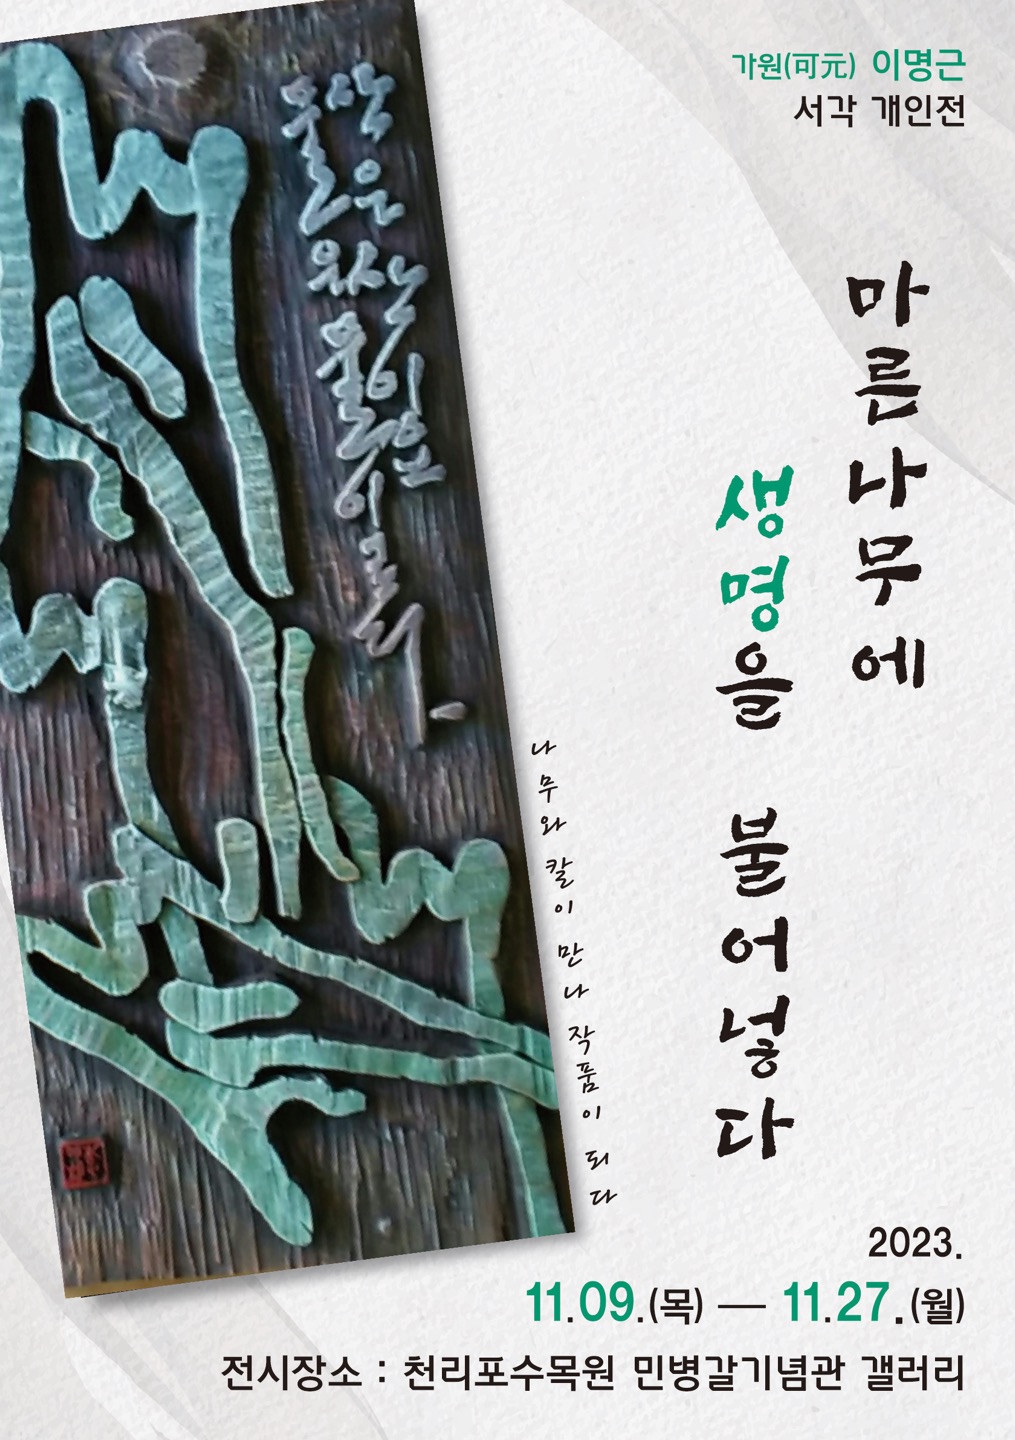 가원(可元) 이명근
서각 개인전
마른나무에
생명을 불어넣다
나무와 칼이 만나 작품이 되다
산은
산이요
물은
물이로다
2023.
11.09.(목) — 11.27.(월)
전시장소 : 천리포수목원 민병갈기념관 갤러리